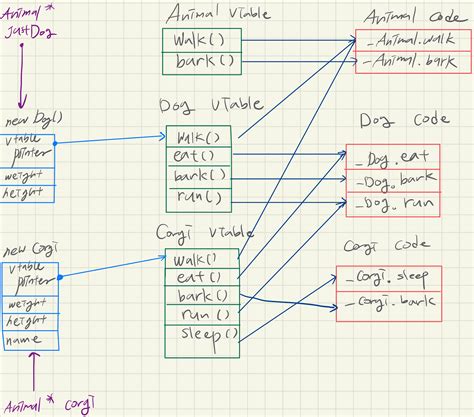 Animal *
justDog
Animal vtable
walk()
bark()
Animal code
_Animal.walk
_Animal.bark
new Dog()
vtable
pointer
weight
height
Dog vtable
walk()
eat()
bark()
run()
Dog code
_Dog.eat
_Dog.bark
_Dog.run
new Corgi
vtable
pointer
weight
height
name
Corgi vtable
walk()
eat()
bark()
run()
sleep()
Corgi code
_Corgi.sleep
_Corgi.bark
Animal* corgi